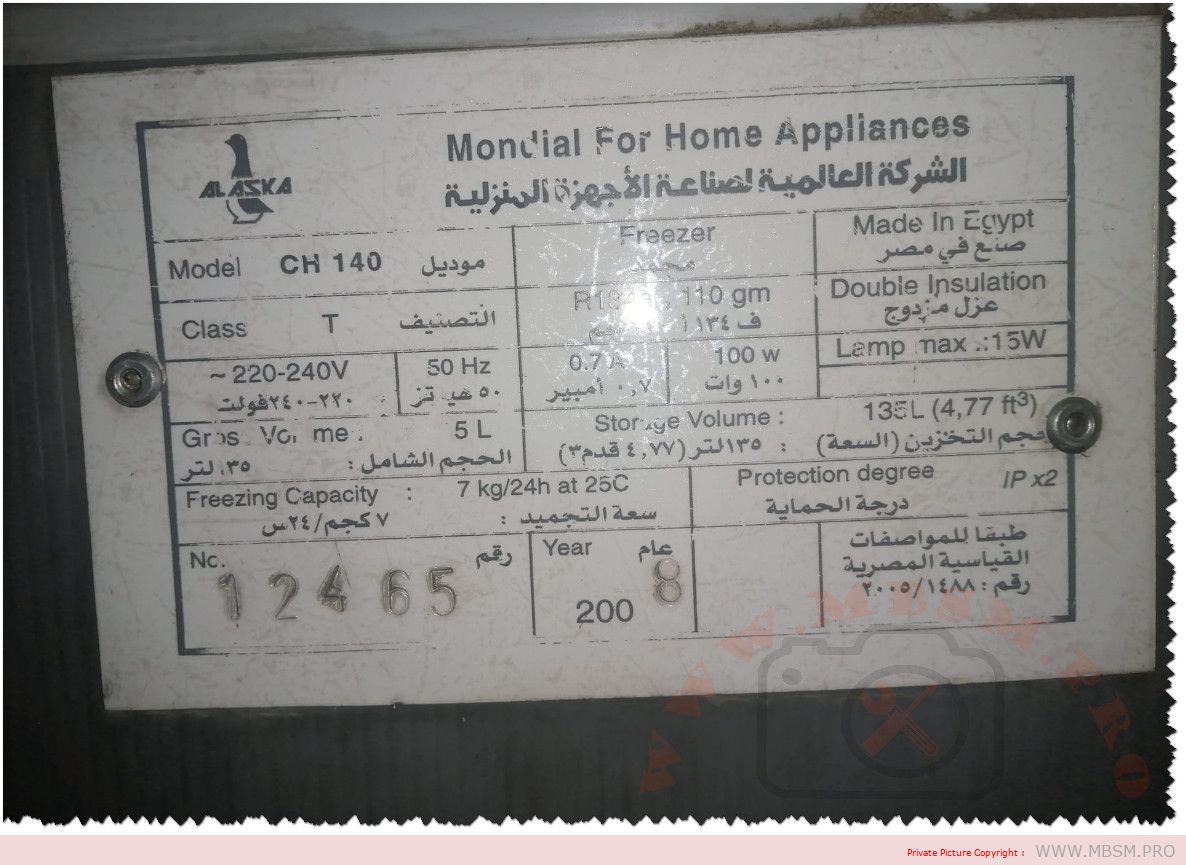 ALASKA
Mondial For Home Appliances
الشركة العالمية لصناعة الأجهزة المنزلية
Model CH 140 موديل
Freezer
Made In Egypt
صنع في مصر
Class T التصنيف
110 gm
ف ١٣٤ أ
Double Insulation
عزل مزدوج
~ 220-240V
٢٢٠-٢٤٠فولت
50 Hz
٥٠ هيرتز
0.7 A
٠,٧ أمبير
100 w
١٠٠ وات
Lamp max .:15W
5 L
الحجم الشامل :
لتر
Storage Volume : 135L (4,77 ft³)
حجم التخزين (السعة) : ١٣٥لتر (٤,٧٧ قدم٣)
Freezing Capacity : 7 kg/24h at 25C
سعة التجميد : ٧ كجم/٢٤س
Protection degree IP x2
درجة الحماية
No. 12465 رقم
Year 2008 عام
طبقا للمواصفات
القياسية المصرية
رقم : ٢٠٠٥/١٤٨٨
WWW.MBSM.PRO
Private Picture Copyright : WWW.MBSM.PRO